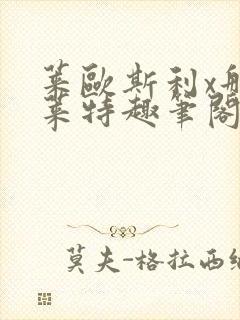 莱歐斯利x
莱特趣筆閣
莫夫-格拉西